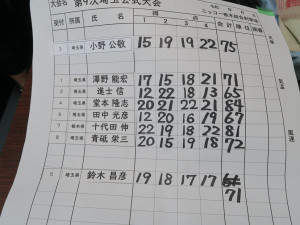 大会名 第9次埼玉公式大会
ニッコー栃木綜合射撃場
受付 所属 氏名 1 2 3 4 合計 順位 備考
3 埼玉県 小野 公敬 15 19 19 22 75
1 埼玉県 澤野 能宏 17 15 18 21 71
2 埼玉県 進士 信 12 22 18 13 65
4 埼玉県 堂本 隆志 20 21 22 21 84
5 埼玉県 田中 光彦 12 20 16 19 67
7 栃木県 十代田 伸 22 19 18 22 81
8 埼玉県 青砥 栄三 20 15 19 18 72
6 埼玉県 鈴木 昌彦 19 18 17 17
71